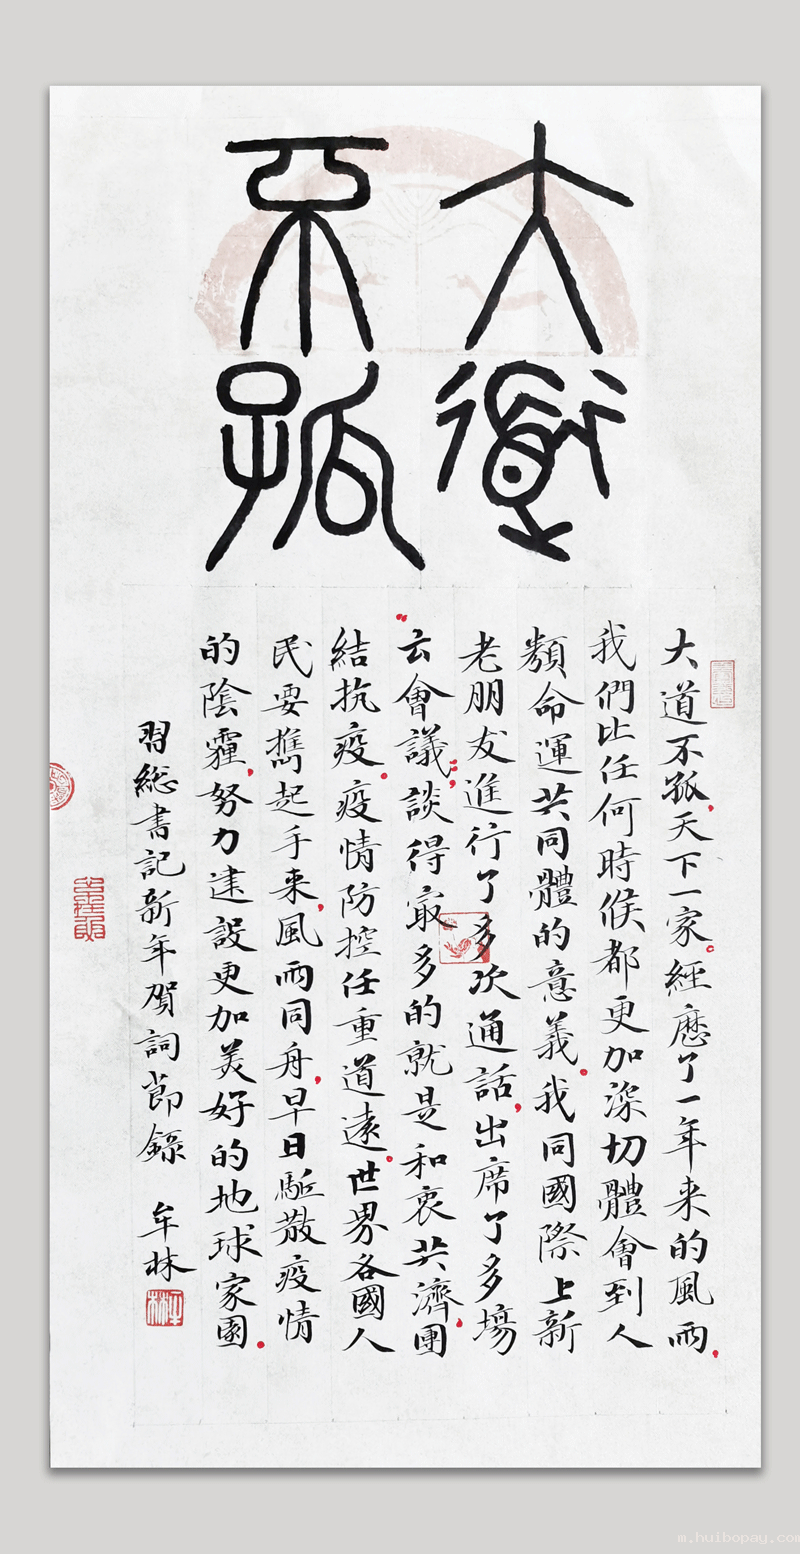 大道
不孤
大道不孤，天下一家。經歷了一年来的風雨，
我們比任何時候都更加深切體會到人
類命運共同體的意義。我同國際上新
老朋友進行了多次通話，出席了多場
“云會議”，談得最多的就是和衷共濟，團
結抗疫。疫情防控任重道遠。世界各國人
民要攜起手来，風雨同舟，早日驅散疫情
的陰霾，努力建設更加美好的地球家園。
習總書記新年賀詞節錄 牟林
牟林
m.huibopay.com